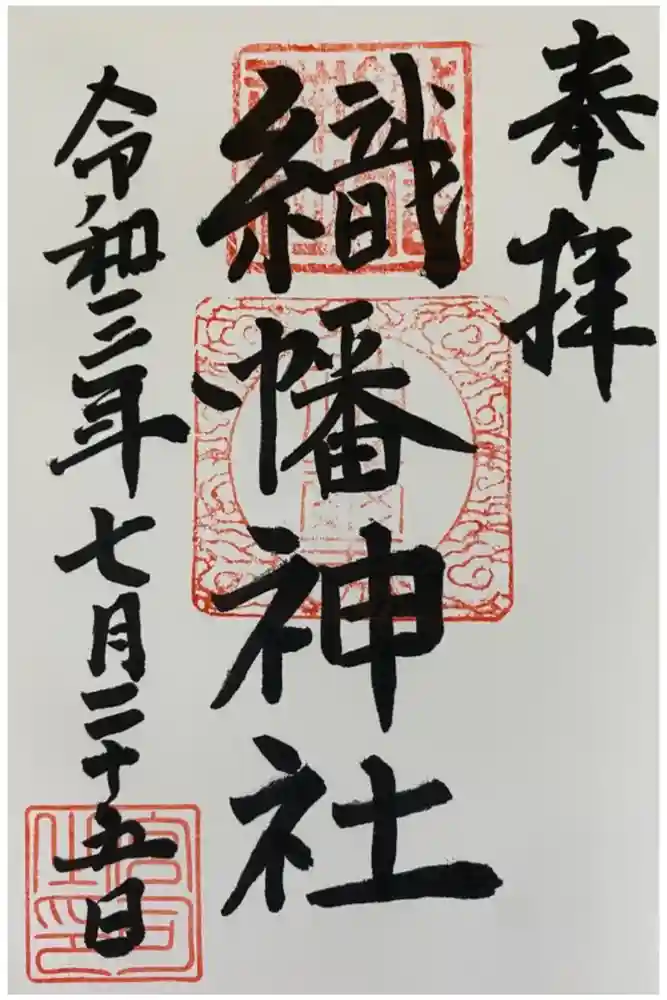 奉拝
織幡神社
令和三年七月二十五日
宮司之印